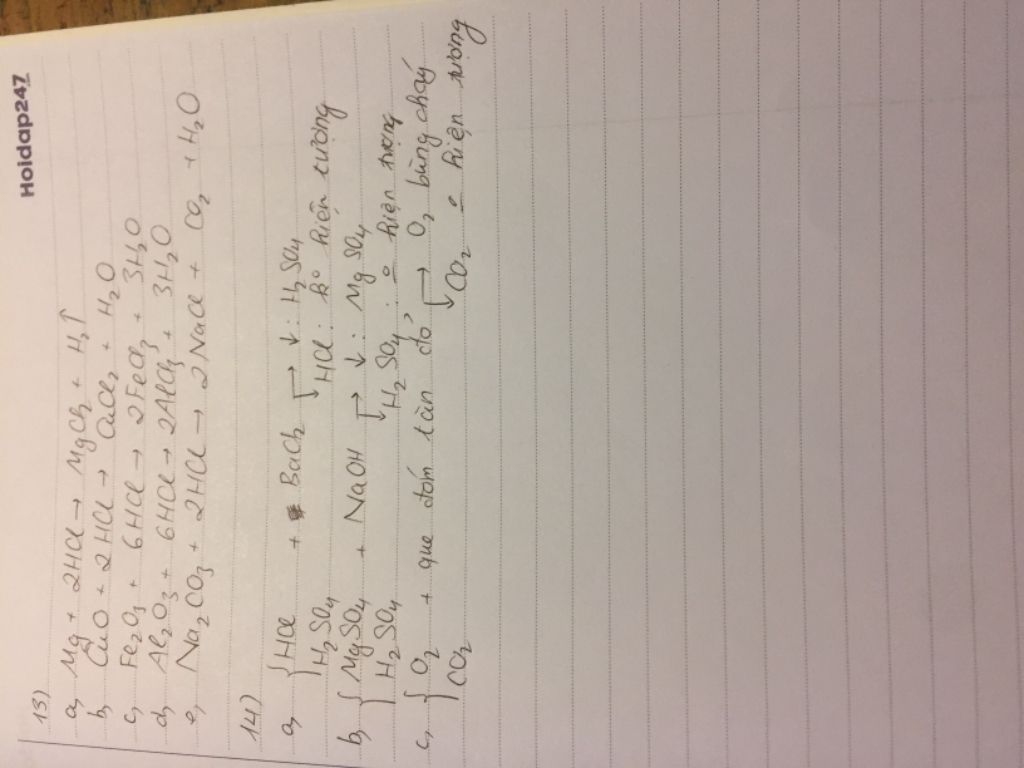 Hoidap247
13)
a, Mg + 2HCl → MgCl₂ + H₂↑
b, CuO + 2HCl → CuCl₂ + H₂O
c, Fe₂O₃ + 6HCl → 2FeCl₃ + 3H₂O
d, Al₂O₃ + 6HCl → 2AlCl₃ + 3H₂O
e, Na₂CO₃ + 2HCl → 2NaCl + CO₂ + H₂O
14)
a, { HCl + BaCl₂ → ↓: H₂SO₄
H₂SO₄ HCl: k° hiện tượng
b, { MgSO₄ + NaOH → ↓: MgSO₄
H₂SO₄ H₂SO₄: hiện tượng
c, { O₂ + que đóm tàn đỏ → O₂ bùng cháy
CO₂ CO₂ hiện tượng